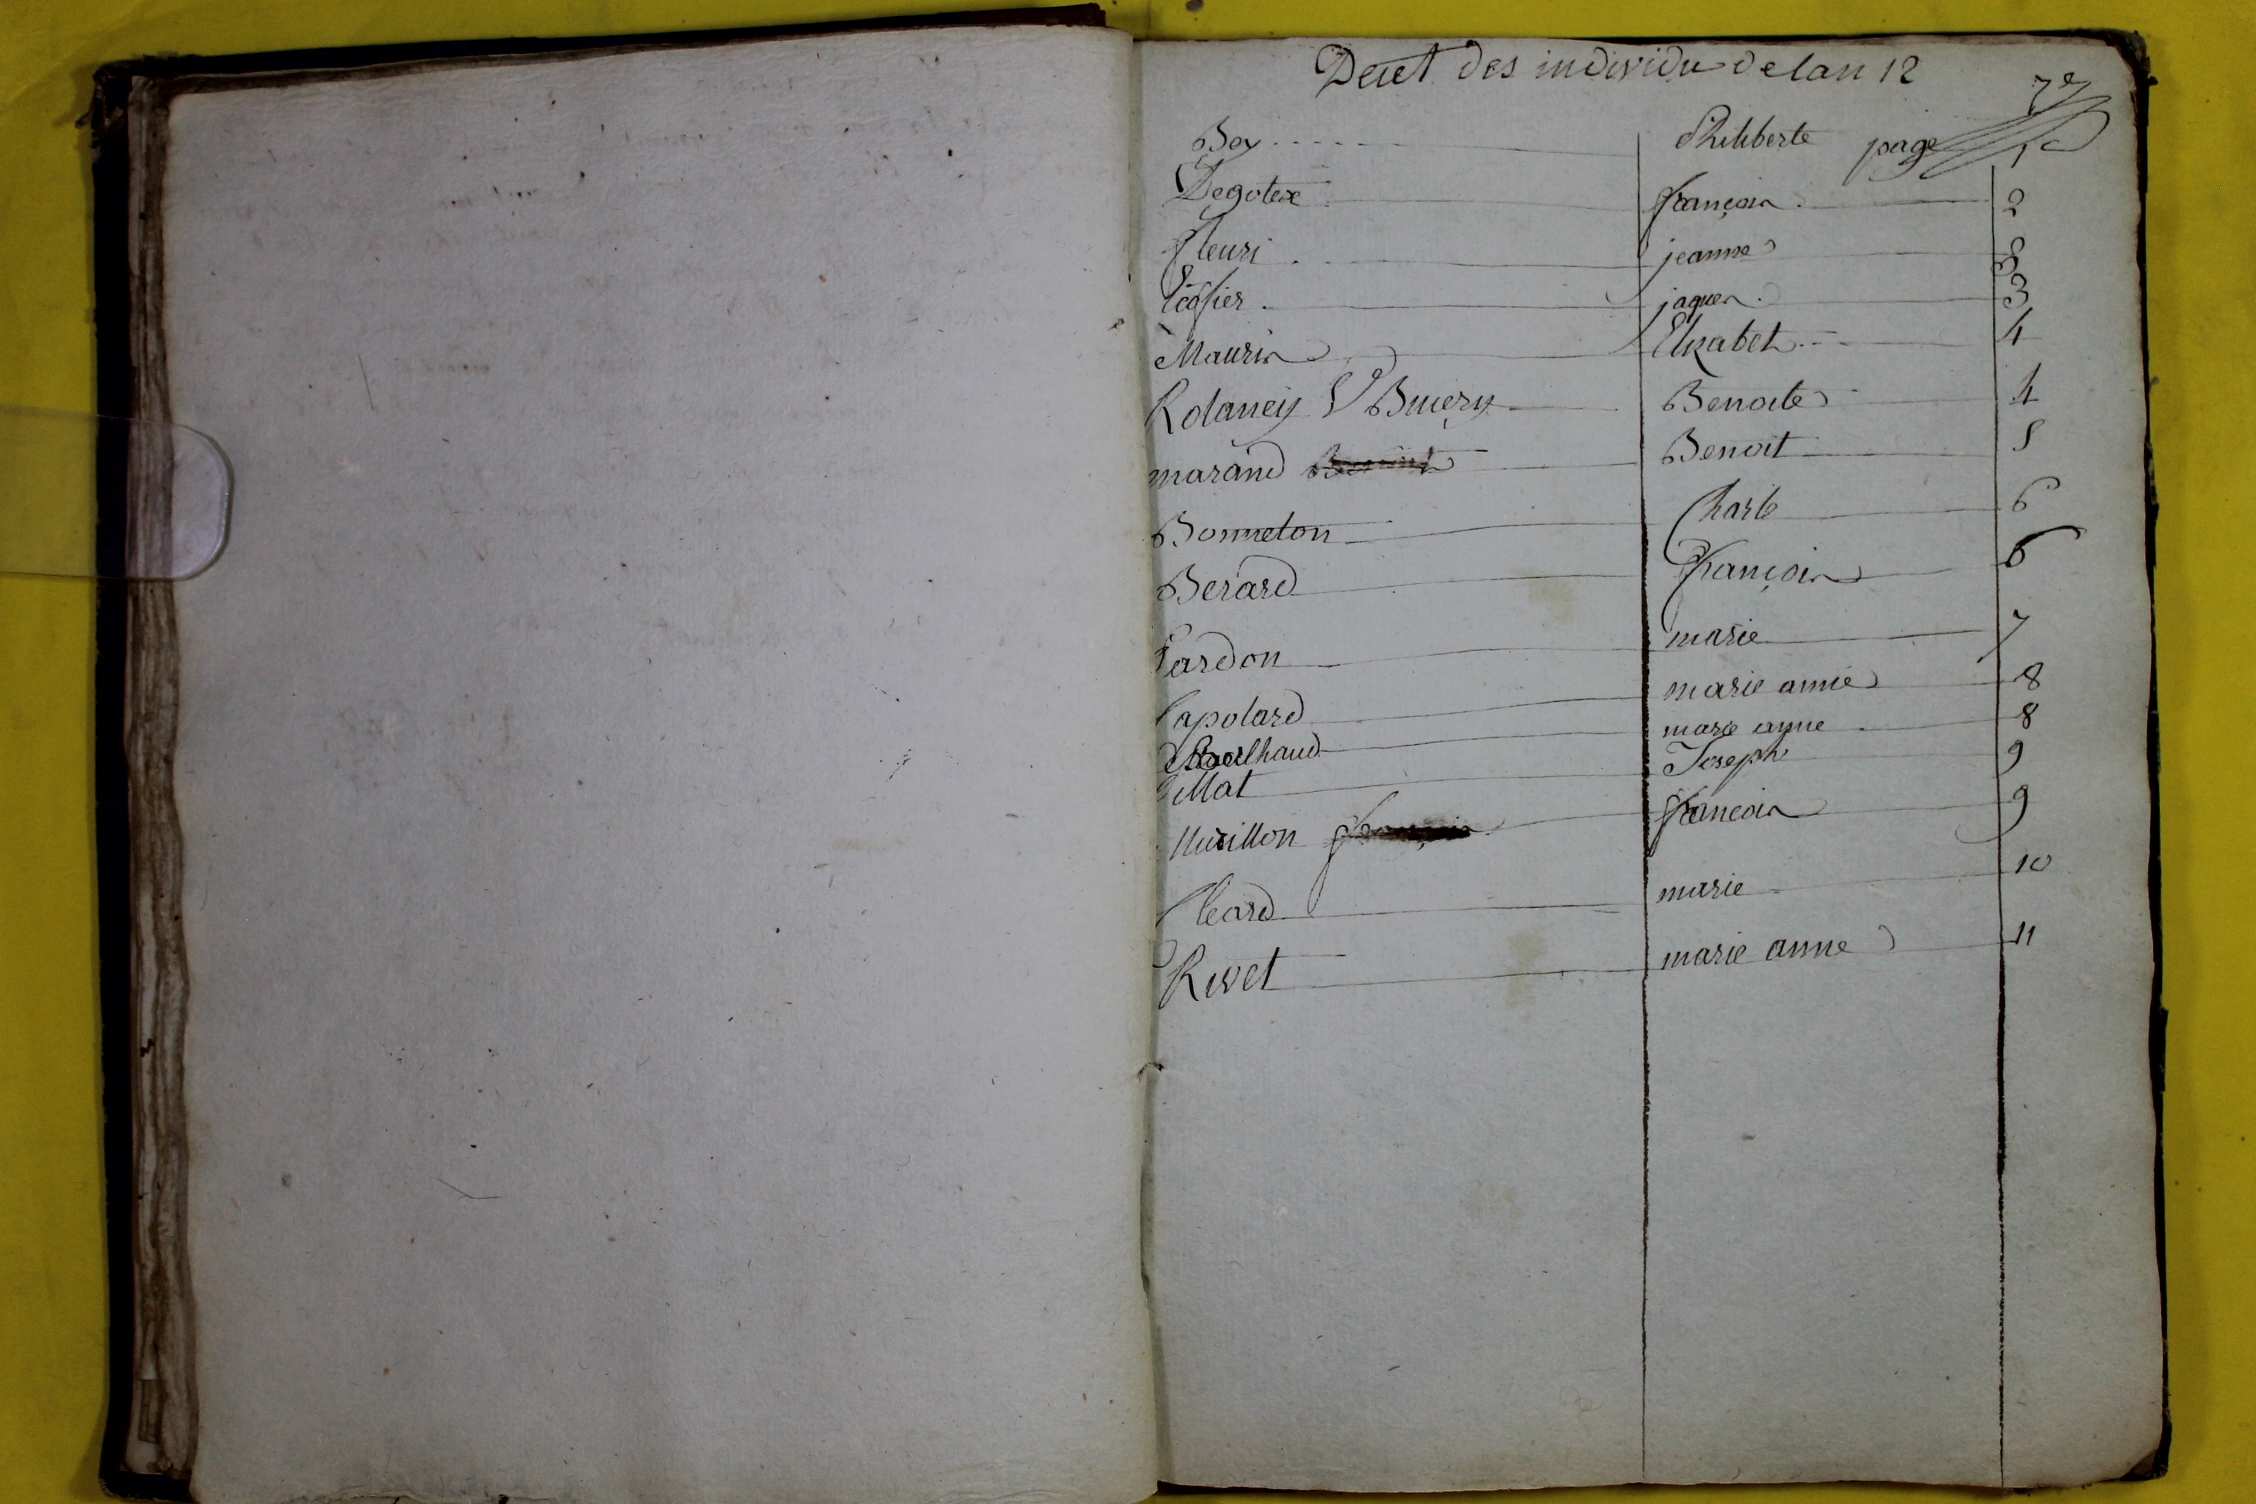 Decet des individu de lan 12
Bey Philiberte page 1
Degotex françois 2
fleuri jeanne
jaques 3
Maurin Elizabet 4
Rolancy Benoite 4
marand Benoit 5
Bonneton Charle 6
Berard françois 6
Pardon marie 7
Capolard marie anne 8
marie anne 8
Mat Joseph 9
Murillon françois 9
Cleard marie 10
Rivet marie anne 11